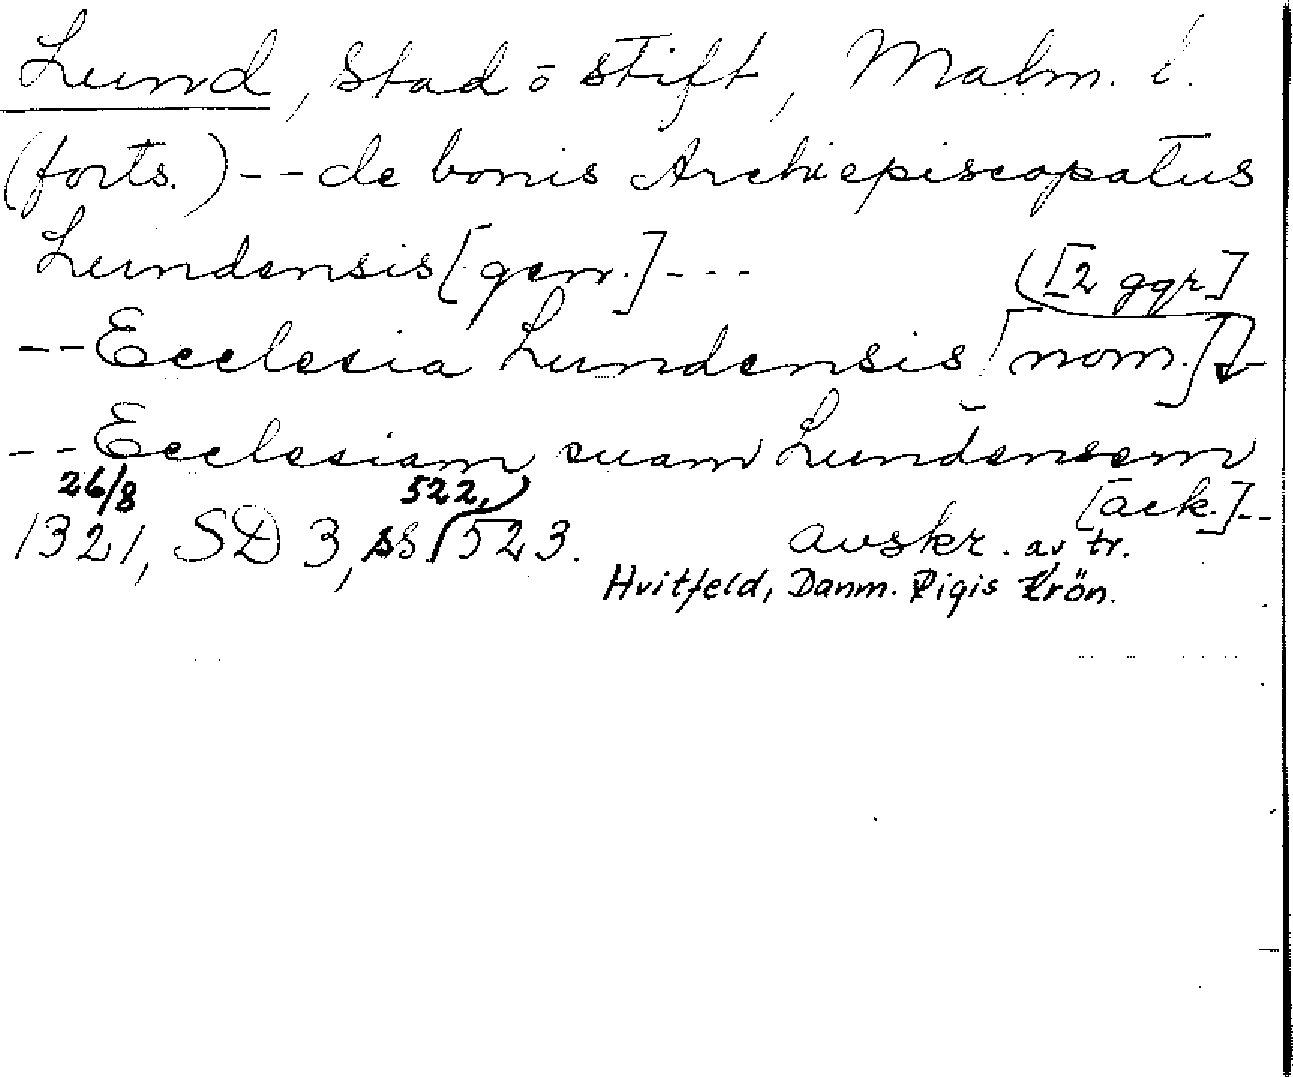 Lund, stad ō stift, Malm. l.
(forts.) -- de bonis Archiepiscopatus
Lundensis [gen.] ---
([2 ggr.]
-- Ecclesia Lundensis [nom.] --
-- Ecclesiam suam Lundensem
[ack.] --
26/8 522,
1321, SD 3, ss 523. avskr. av tr.
Hvitfeld, Danm. Rigis Krön.